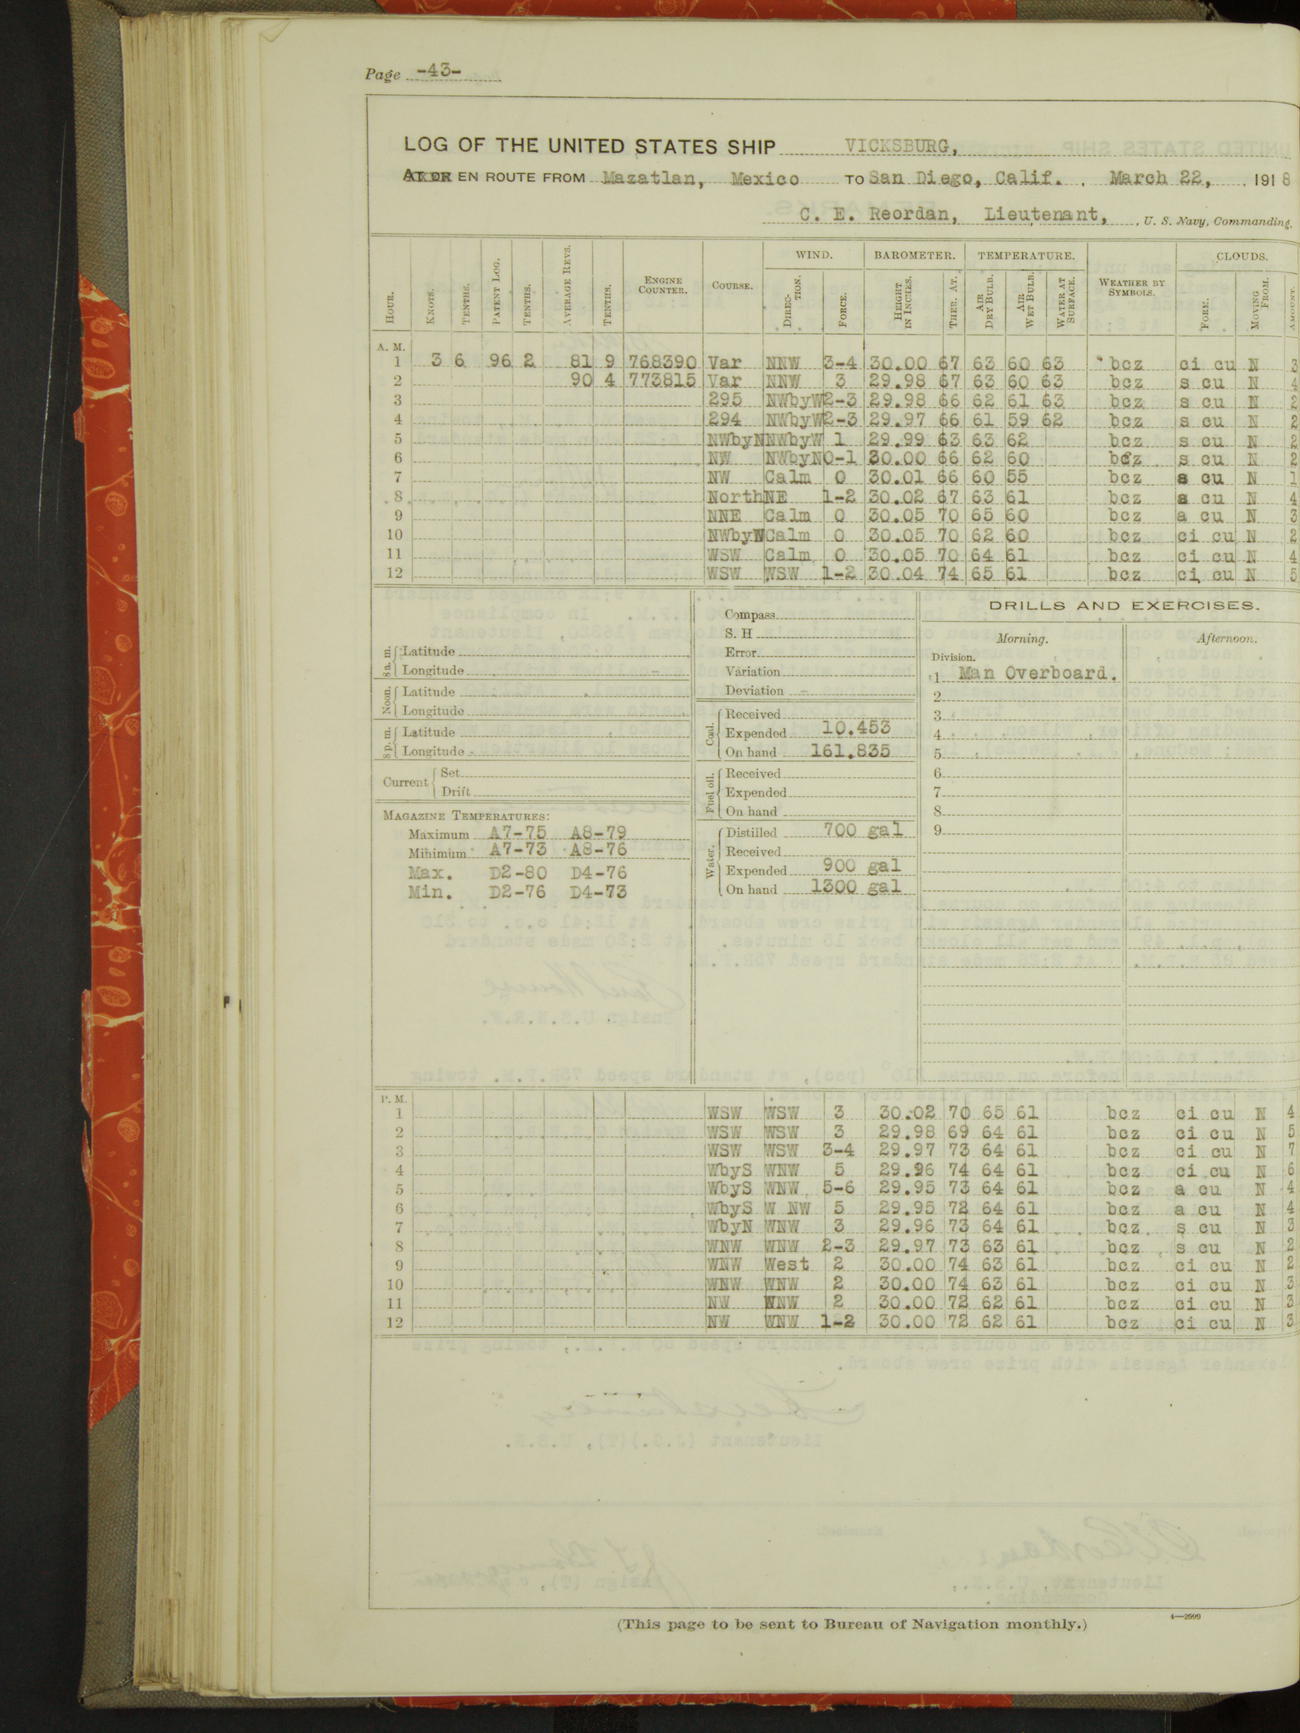 Page -43-
LOG OF THE UNITED STATES SHIP VICKSBURG,
EN ROUTE FROM Mazatlan, Mexico TO San Diego, Calif. , March 22, , 1918
C. E. Reordan, Lieutenant, , U. S. Navy, Commanding,
WIND. BAROMETER. TEMPERATURE. CLOUDS.
HOUR. KNOTS. TENTHS. PATENT LOG. TENTHS. AVERAGE REVS. TENTHS. ENGINE COUNTER. COURSE. DIREC-TION. FORCE. HEIGHT IN INCHES. THER. AT. AIR DRY BULB. AIR WET BULB. WATER AT SURFACE. WEATHER BY SYMBOLS. FORM. MOVING FROM. AMOUNT.
A. M.
1 3 6 96 2 81 9 768390 Var NNW 3-4 30.00 67 63 60 63 bcz ci cu N 3
2 90 4 773815 Var NNW 3 29.98 67 63 60 63 bcz s cu N 4
3 295 NWbyW 2-3 29.98 66 62 61 63 bcz s cu N 2
4 294 NWbyW 2-3 29.97 66 61 59 62 bcz s cu N 2
5 NWbyN NWbyW 1 29.99 63 63 62 bcz s cu N 2
6 NW NWbyN 0-1 30.00 66 62 60 bcz s cu N 2
7 NW Calm 0 30.01 66 60 55 bcz a cu N 1
8 North NE 1-2 30.02 67 63 61 bcz a cu N 4
9 NNE Calm 0 30.05 70 65 60 bcz a cu N 3
10 NWbyN Calm 0 30.05 70 62 60 bcz ci cu N 2
11 WSW Calm 0 30.05 70 64 61 bcz ci cu N 4
12 WSW WSW 1-2 30.04 74 65 61 bcz ci cu N 5
8 a. m. Latitude
Longitude
Noon. Latitude
Longitude
8 p. m. Latitude
Longitude
Current Set
Drift
MAGAZINE TEMPERATURES:
Maximum A7-75 A8-79
Minimum A7-73 A8-76
Max. D2-80 D4-76
Min. D2-76 D4-73
Compass
S. H
Error
Variation
Deviation
Coal. Received
Expended 10.453
On hand 161.835
Fuel oil. Received
Expended
On hand
Water. Distilled 700 gal
Received
Expended 900 gal
On hand 1300 gal
DRILLS AND EXERCISES.
Morning. Afternoon.
Division.
1 Man Overboard.
2
3
4
5
6
7
8
9
P. M.
1 WSW WSW 3 30.02 70 65 61 bcz ci cu N 4
2 WSW WSW 3 29.98 69 64 61 bcz ci cu N 5
3 WSW WSW 3-4 29.97 73 64 61 bcz ci cu N 7
4 WbyS WNW 5 29.96 74 64 61 bcz ci cu N 6
5 WbyS WNW 5-6 29.95 73 64 61 bcz a cu N 4
6 WbyS W NW 5 29.95 72 64 61 bcz a cu N 4
7 WbyN WNW 3 29.96 73 64 61 bcz s cu N 3
8 WNW WNW 2-3 29.97 73 63 61 bcz s cu N 2
9 WNW West 2 30.00 74 63 61 bcz ci cu N 2
10 WNW WNW 2 30.00 74 63 61 bcz ci cu N 3
11 NW WNW 2 30.00 72 62 61 bcz ci cu N 3
12 NW WNW 1-2 30.00 72 62 61 bcz ci cu N 3
(This page to be sent to Bureau of Navigation monthly.)